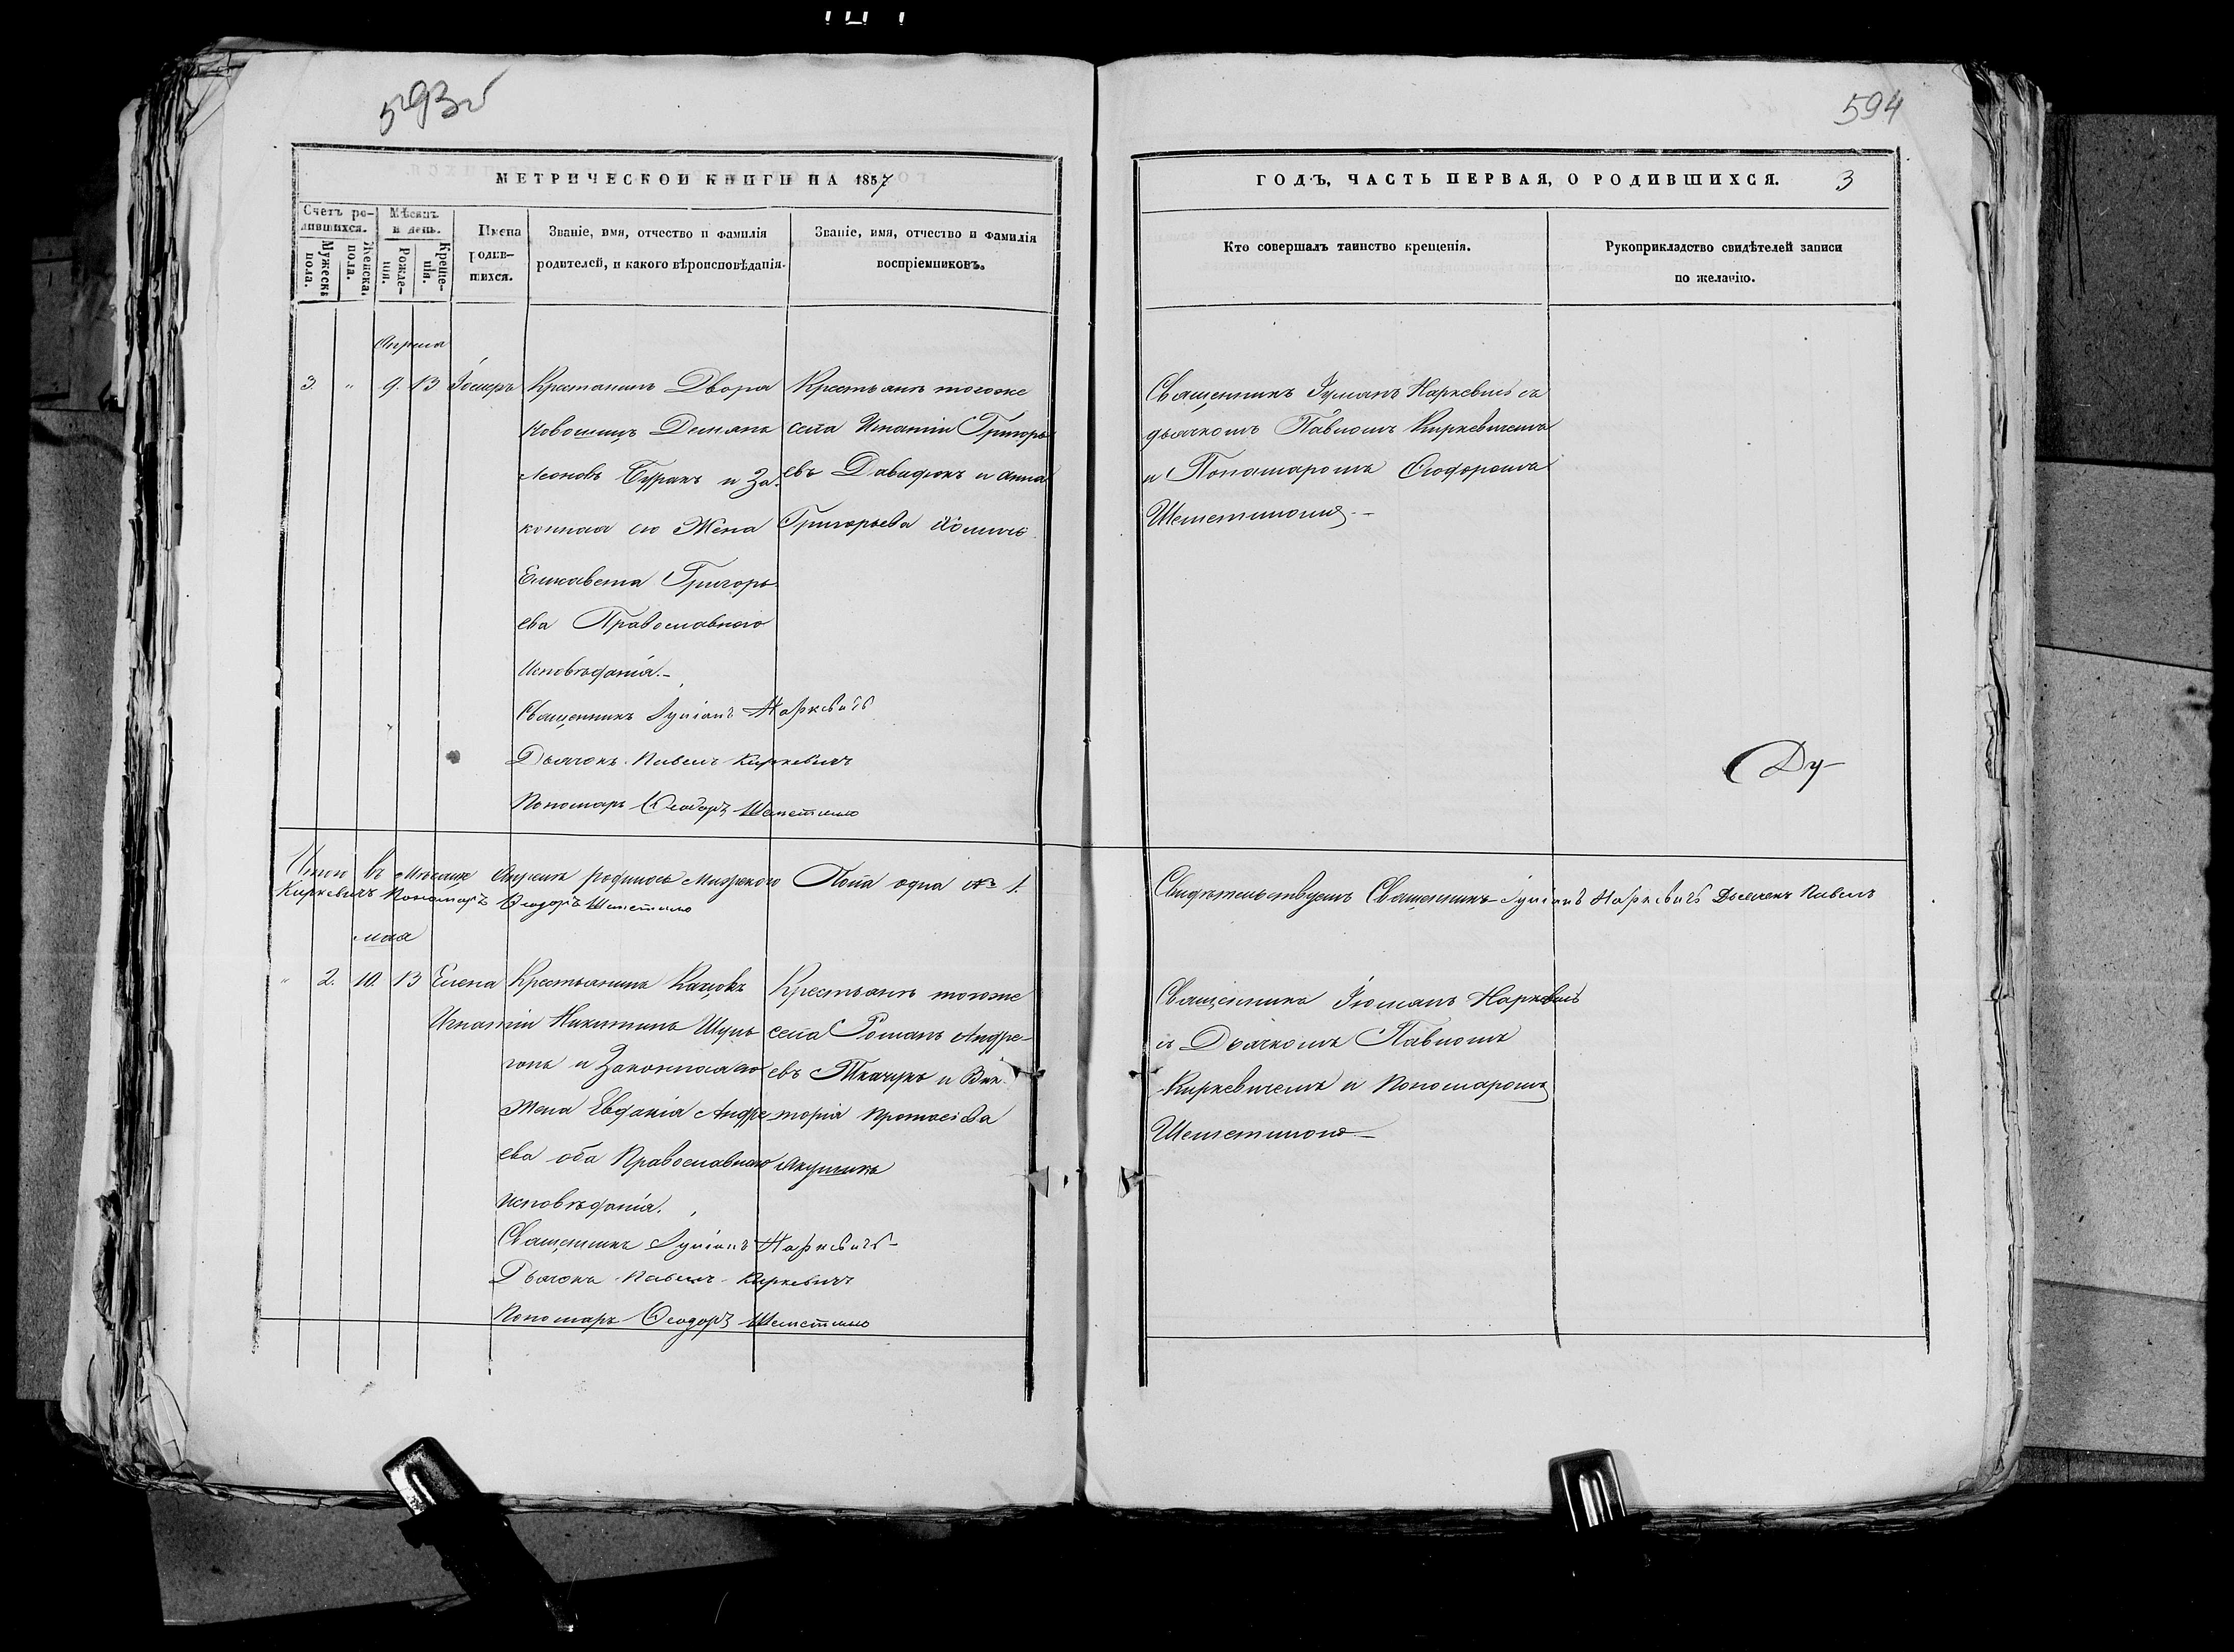 593
594
МЕТРИЧЕСКОЙ КНИГИ НА 1857
ГОДЪ, ЧАСТЬ ПЕРВАЯ, О РОДИВШИХСЯ. 3
Счетъ родившихся.
Мужеска пола.
Женска. пола.
Мѣсяцъ и день.
Рожденія.
Крещенія.
Имена родившихся.
Званіе, имя, отчество и фамилія
родителей, и какого вѣроисповѣданія.
Званіе, имя, отчество и фамилія
воспріемниковъ.
Кто совершалъ таинство крещенія.
Рукоприкладство свидѣтелей записи
по желанію.
Апреля
3. " 9. 13
Крестьянинъ Двора
Демьянъ
Леоновъ Буракъ и За-
конная его Жена
Елисавета Григорь-
ева Православнаго
Исповѣданія.
Священникъ Іуліанъ Наркевичъ
Дьячокъ Павелъ Киркевичъ
Пономарь Ѳеодоръ Шеметилло
Крестьянъ тогоже
села Игнатій Григорь
евъ Давидюкъ и Анна
Григорьева
Священникъ Іуліанъ Наркевичъ съ
дьячкомъ Павломъ Киркевичемъ
и Понамаромъ Ѳеодоромъ
Шеметилломъ
Ду-
Итого въ мѣсяцѣ Апрелѣ родилось Мужеского Пола одна № 1.
Свидѣтельствуемъ Священникъ Іуліанъ Наркевичъ Дьячекъ Павелъ
Киркевичъ Пономарь Ѳеодоръ Шеметилло
мая
" 2. 10. 13 Елена
Крестьянина
Игнатій Никитинъ
и Законная его
Жена Евдокія Андре
ева оба Православнаго
исповѣданія.
Священникъ Іуліанъ Наркевичъ
Дьячокъ Павелъ Киркевичъ
Пономарь Ѳеодоръ Шеметилло
Крестьянъ тогоже
села Романъ Андре-
евъ Ткачукъ и Вик-
торія Протасіева
Священникъ Іюліанъ Наркевичъ
съ Дьячкомъ Павломъ
Киркевичемъ и Пономаромъ
Шеметилломъ